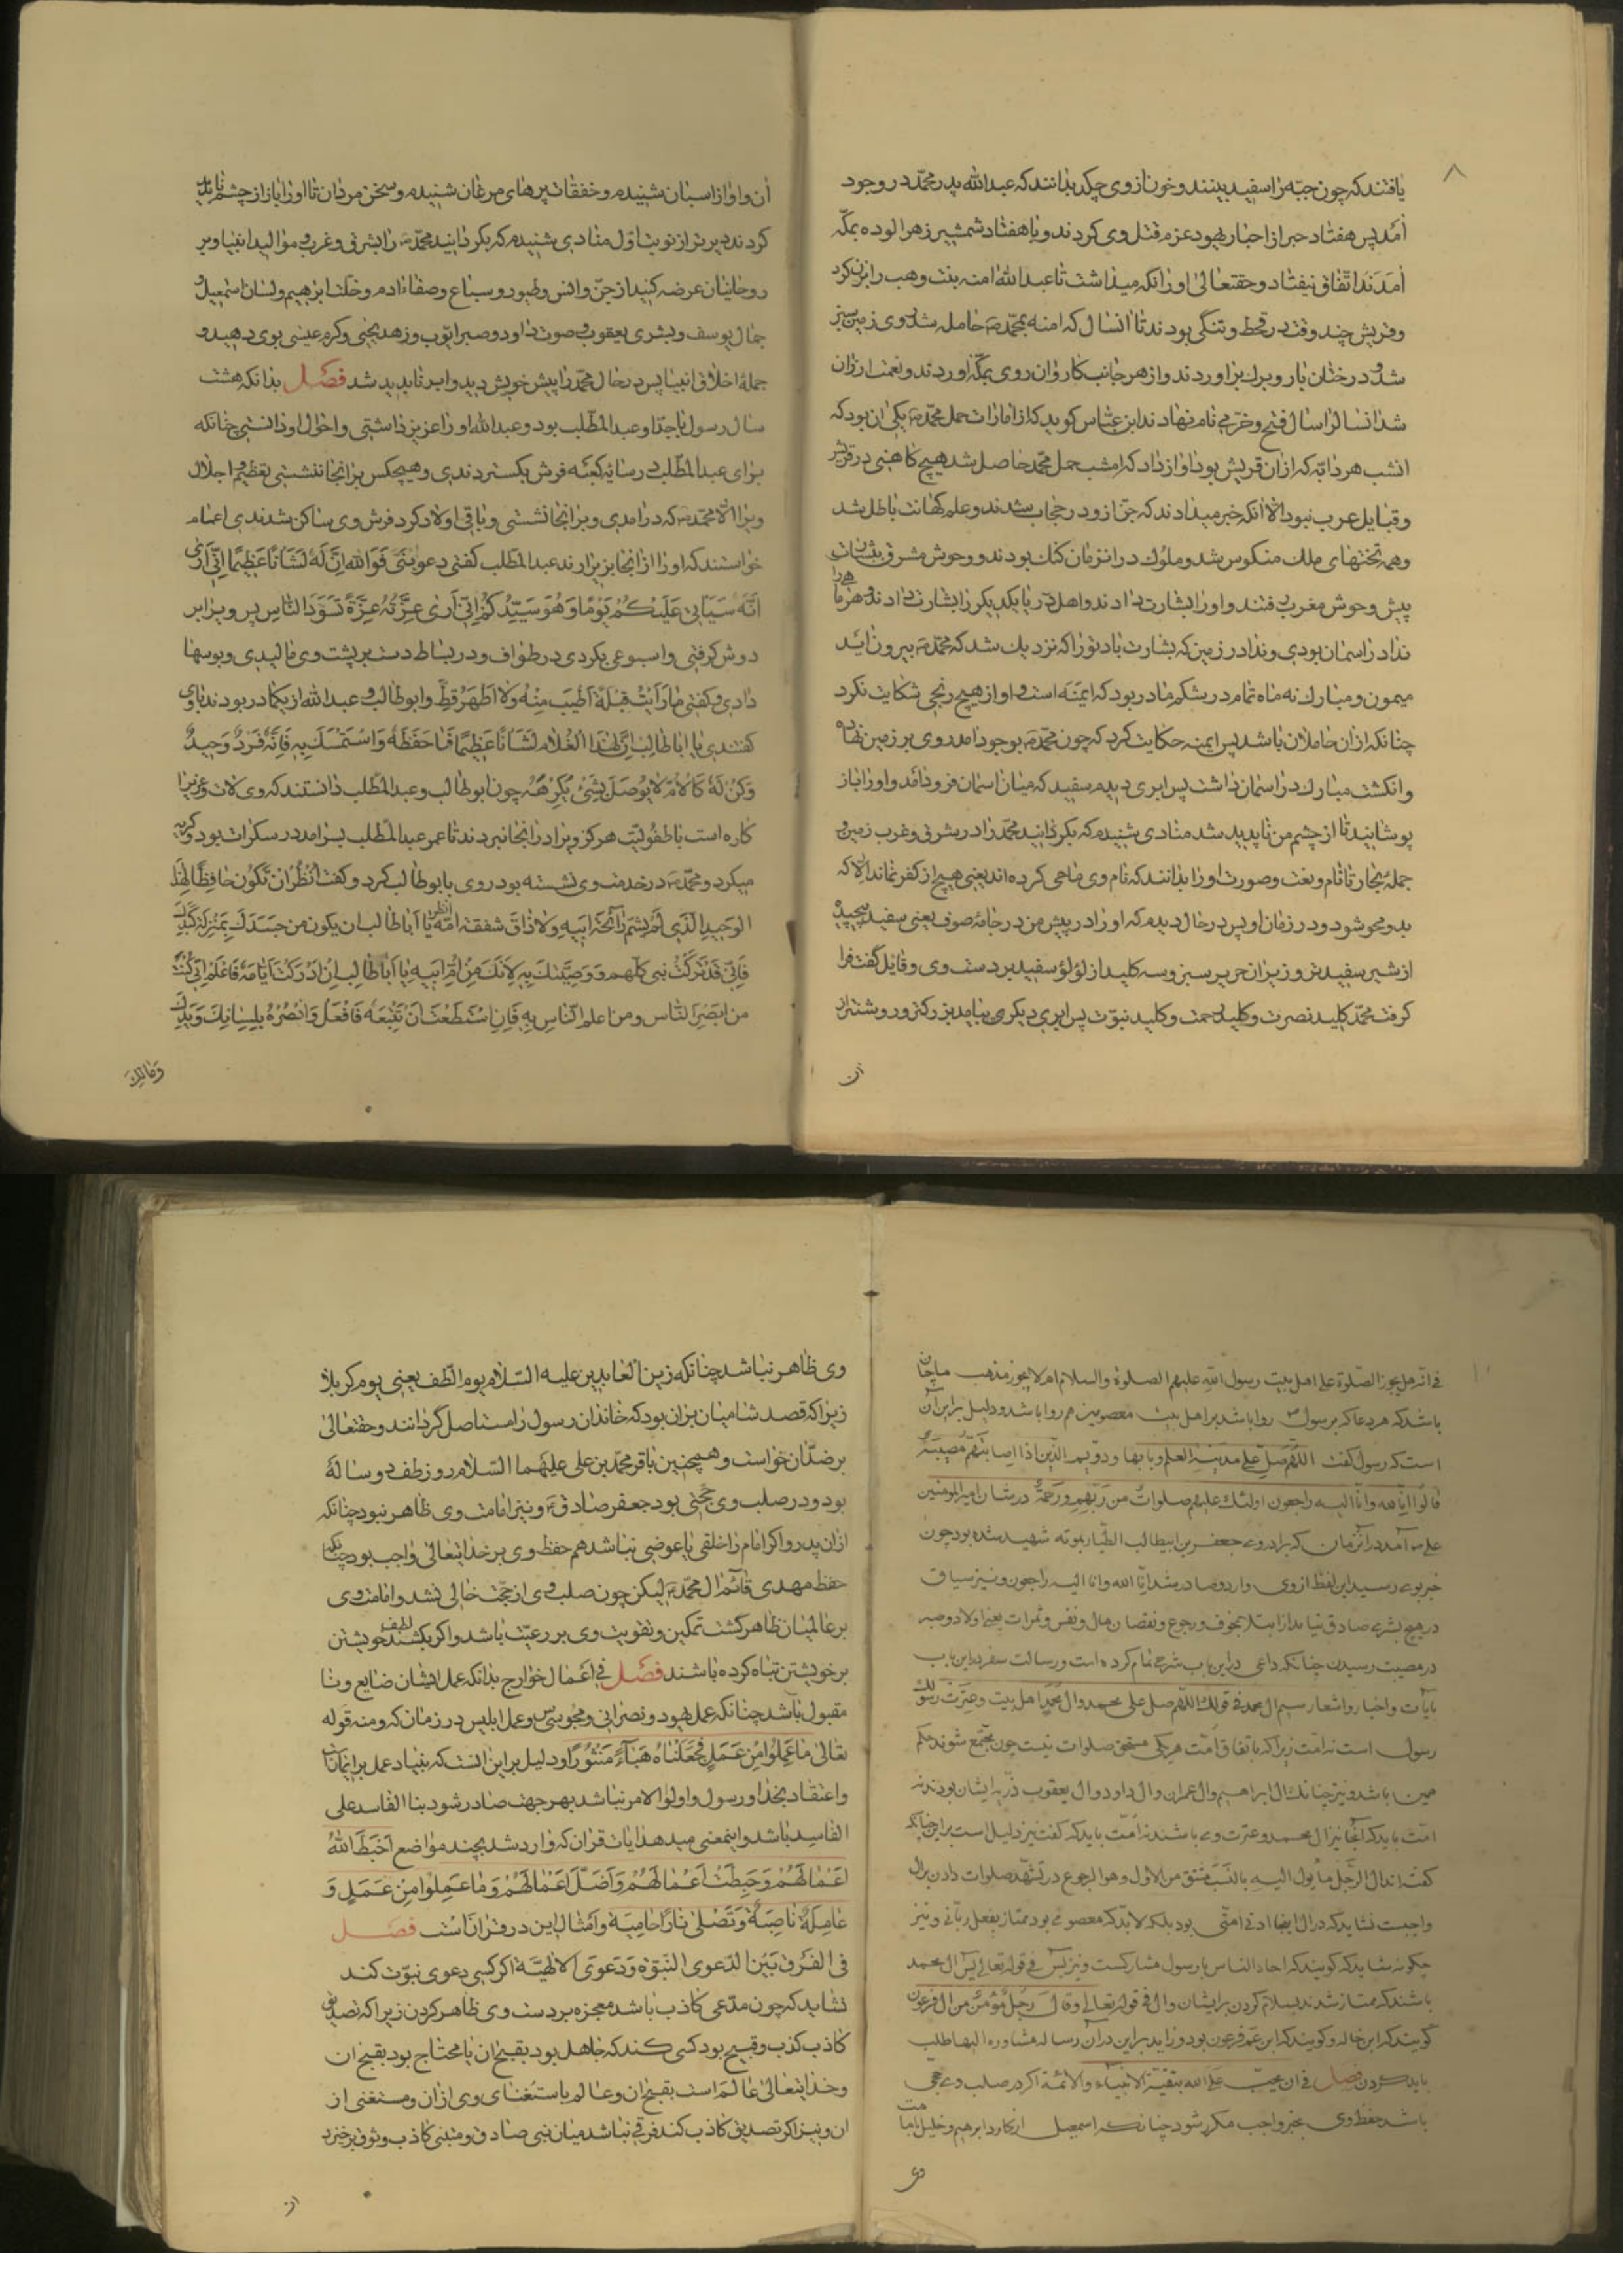 ۸
یافتند که چون جبّه را سفید بینند و خون از وی چکد بدانند که عبدالله پدر محمّد در وجود
آمد پس هفتاد حبر از احبار یهود عزم قتل وی کردند و با هفتاد شمشیر زهرالوده بمکّه
آمدند اتّفاق نیفتاد و حقتعالی اورا نکه میداشت تا عبدالله امنه بنت وهب را بزن کرد
و قریش چند وقت در قحط و تنگی بودند تا انسال که امنه بمحمّد حامله شد روی زمین سبز
شد و درختان بار و برک براوردند و از هر جانب کاروان روی بمکّه اوردند و نعمت ارزان
شد انسال را سال فتح و خرّمی نام نهادند ابن عبّاس کوید که از امارات حمل محمّد یکی ان بود که
انشب هر دابّه که ازان قریش بود اواز داد که امشب حمل محمّد حاصل شد هیچ کاهنی در قریش
و قبایل عرب نبود الّا انکه خبر میدادند که جنّ ازو در حجاب شدند و علم کهانت باطل شد
و همه تختهای ملک منکوس شد و ملوک در انزمان کنک بودند و وحوش مشرق بشارت
پیش وحوش مغرب رفتند و اورا بشارت دادند و اهل دریا یکدیکر را بشارت دادند و هر ماه
ندا در اسمان بودی و ندا در زمین که بشارت باد تورا که نزدیک شد که محمّد بیرون آید
میمون و مبارک نه ماه تمام در شکم مادر بود که ایمنه است و او از هیچ رنجی شکایت نکرد
چنانکه ازان حاملان باشد پس ایمنه حکایت کرد که چون محمّد بوجود امد روی بر زمین نهاد
و انکشت مبارک در اسمان داشت پس ابری دیدم سفید که میان اسمان فرود آمد و اورا باز
پوشانید تا از چشم من ناپدید شد منادی شنیدم که بکردانید محمّد را در شرق و غرب زمین و
جملهٔ بحار تا نام و نعت و صورت اورا بدانند که نام وی ماحی کرده اند یعنی هیچ از کفر نماند الّا که
بدو محو شود در زمان او پس در حال دیدم که اورا در پیش من در جامهٔ صوف یعنی سفید پیچیده
از شیر سفیدتر و زیر ان حریر سبز و سه کلید از لؤلؤ سفید بر دست وی و قایل گفت فرا
گرفت محمّد کلید نصرت و کلید رحمت و کلید نبوّت پس ابری دیکری بیامد بزرکتر و روشنتر از
ان
ان و اواز اسبان شنیدم و خفقات پرهای مرغان شنیدم و سخن مردان تا اورا باز از چشم ناپدید
کردند دیرتر از نوبت اوّل منادی شنیدم که بکردانید محمّد را بشرق و غرب و موالید انبیا و بر
روحانیان عرضه کنید از جنّ و انس و طیور و سباع و صفاء ادم و خلّت ابرهیم و لسان اسمعیل و
جمال یوسف و بشری یعقوب و صوت داود و صبر ایّوب و زهد یحیی و کرم عیسی بوی دهید و
جمله اخلاق انبیا پس در حال محمّد را پیش خویش دید و ابر ناپدید شد فصل بدانکه هشت
سال رسول با جدّ او عبدالمطّلب بود و عبدالله اورا عزیز داشتی و احوال او دانستی چنانکه
برای عبدالمطّلب در سایه کعبه فرش بکستردندی و هیچکس بر انجا ننشستی تعظیم و اجلال
ویرا الّا محمّد که در امدی و بر انجا نشستی و باقی اولاد کرد فرش وی ساکن شدندی اعمام
خواستند که اورا از انجا بزیر ارند عبدالمطلب کفتی دعوا بنیّ فوالله انّ له لشانًا عظیمًا انّی اری
انّه سیاتی علیکم یومًا و هو سیّدکم انّی اری غرّته غرّة تسود الناس پس ویرا بر
دوش کرفتی و اسبوعی بکردی در طواف و در بساط دست بر پشت وی مالیدی و بوسها
دادی و کفتی ما رایت قبلة اطیب منه ولا اطهر قطّ و ابوطالب و عبدالله از یک مادر بودند با وی
کفتندی یا اباطالب انّ لهذا الغلام لشانًا عظیمًا فاحفظه و استمسک به فانّه فرد وحید
وکن له کالام لا یوصل بشئ یکرهه چون ابوطالب و عبدالمطّلب دانستند که وی لات و عزّی را
کاره است با طفولیّت هرکز ویرا در انجا نبردند تا عمر عبدالمطّلب بسر امد در سکرات بود و کریه
میکرد و محمّد در خدمت وی نشسته بود روی بابوطالب کرد و کفت انظر ان تکون حافظًا لهذا
الوحید الّذی لم یشم رائحة ابیه ولا ذاق شفقة امّه انظر یا اباطالب ان یکون من جسدک بمنزلة کبدک
فانّی قد ترکت بنی کلّهم و وصّیتک به لانّک من امّ ابیه یا اباطالب ان ادرکت ایّامه فاعلم انّی کنت
من ابصر الناس و من اعلم الناس به فان استطعت ان تتبعه فافعل وانصره بلسانک ویدک
ومالک
فی انّه هل یجوز الصّلوة علی اهل بیت رسول الله علیهم الصلوة والسلام ام لا یجوز مذهب ما چنان
باشد که هر دعا که بر رسول روا باشد بر اهل بیت معصومین هم روا باشد و دلیل بر این آن
است که رسول کفت اللّهمّ صلّ علی مدینة العلم وبابها و دویم الّذین اذا اصابتهم مصیبة
قالوا انّا لله وانّا الیه راجعون اولئک علیهم صلوات من ربّهم ورحمة در شان امیر المومنین
علی آمد در انزمان که برادر وی جعفر بن ابیطالب الطّیار بموته شهید شده بود چون
خبر بوی رسید این لفظ از وی وارد و صادر شد انّا لله وانّا الیه راجعون و نیز سیاق
در هیچ بشری صادق نیامد از ابتلا بخوف و رجوع و نقصان مال و نفس و ثمرات یعنی اولاد و صبر
در مصیبت رسیدن چنانکه داعی در این باب شرح تمام کرده است و رسالت سفر بداین باب
بآیات و اخبار و اشعار سیم ال محمد فی قولک اللّهمّ صل علی محمد وال محمّد اهل بیت و عترت
رسول است نه امت زیرا که باتفاق امّت هر یکی مستحق صلوات نیست چون مجتمع شوند حکم
همین باشد و نیز چنانک ال ابراهیم وال عمران وال داود وال یعقوب ذرّیه ایشان بودند نه
امّت باید که انجا نیز ال محمد و عترت وی باشند نه امّت باید که کفت نیز دلیل است بر این چنانکه
کفت انّ ال الرّجل ما یول الیه بالنّسب مشتق من الاوّل وهو الرجوع در تشهّد صلوات دادن بر ال
واجبست نشاید که در ال اینجا ادنی امتی بود بلکه لابدّ که معصومی بود ممتاز بفعل ربّانی و نیز
چکونه شاید که کویند که احاد الناس با رسول مشارکست و نیز یس فی قوله تعالی یس ال محمد
باشند که ممتاز شدند بسلام کردن بر ایشان وال فی قوله تعالی وقال رجل مؤمن من ال فرعون
کویند که ابن خاله و کویند که ابن عم فرعون بود و زاید بر این در آن رساله مشاوره البها طلب
باید کردن فصل فی ان یجب علی الله بتقیة الانبیاء والائمّة اکر در صلب وی حجتی
باشد حفظ وی بخیر واجب مکرر شود چنانکه اسمعیل از کارد ابرهیم و خلیل
وی
وی ظاهر نباشد چنانکه زین العابدین علیه السّلام یوم الطّف یعنی یوم کربلا
زیرا که قصد شامیان بران بود که خاندان رسول را مستاصل گردانند و حقتعالی
بر ضدّ ان خواست و همچنین باقر محمّد بن علی علیهما السّلام روز طف دو ساله
بود و در صلب وی حجّتی بود جعفر صادق و نیز امامت وی ظاهر نبود چنانکه
ازان پدر و اکر امام را خلقی یا عوضی نباشد هم حفظ وی بر خدایتعالی واجب بود چنانکه
حفظ مهدی قائم ال محمّد لیکن چون صلب وی از حجّت خالی نشد و امامت وی
بر عالمیان ظاهر کشت تمکین و تقویت وی بر رعیّت باشد و اکر بکشند لطف خویشتن
بر خویشتن تباه کرده باشند فصل فی اعمال خوارج بدانکه عمل ایشان ضایع و نا
مقبول باشد چنانکه عمل یهود و نصرانی و مجوسی و عمل ابلیس در زمان که ومنه قوله
تعالی ما عملوا من عمل فجعلناه هباءً منثورًا و دلیل بر این انست که بنیاد عمل بر ایمانست
و اعتقاد بخدا و رسول و اولوا الامر نباشد بهر جهت صادر شود بنا الفاسد علی
الفاسد باشد و اینمعنی میدهد ایات قران که وارد شد بچند مواضع احبط الله
اعمالهم وحبطت اعمالهم واضلّ اعمالهم وما عملوا من عمل و
عاملة ناصبة وتصلی نارًا حامیة و امثال این در قران است فصل
فی الفرق بین الدّعوی النّبوّة ودعوی الالهیّة اکر کسی دعوی نبوّت کند
نشاید که چون مدّعی کاذب باشد معجزه بر دست وی ظاهر کردن زیرا که تصدیق
کاذب کذب و قبیح بود کسی کند که جاهل بود بقبح ان یا محتاج بود بقبح ان
و خدایتعالی عالم است بقبح ان و عالم باستغنای وی ازان و مستغنی از
ان و نیز اکر تصدیق کاذب کند فرقی نباشد میان نبی صادق و متنبّی کاذب و وثوق برخیزد
از